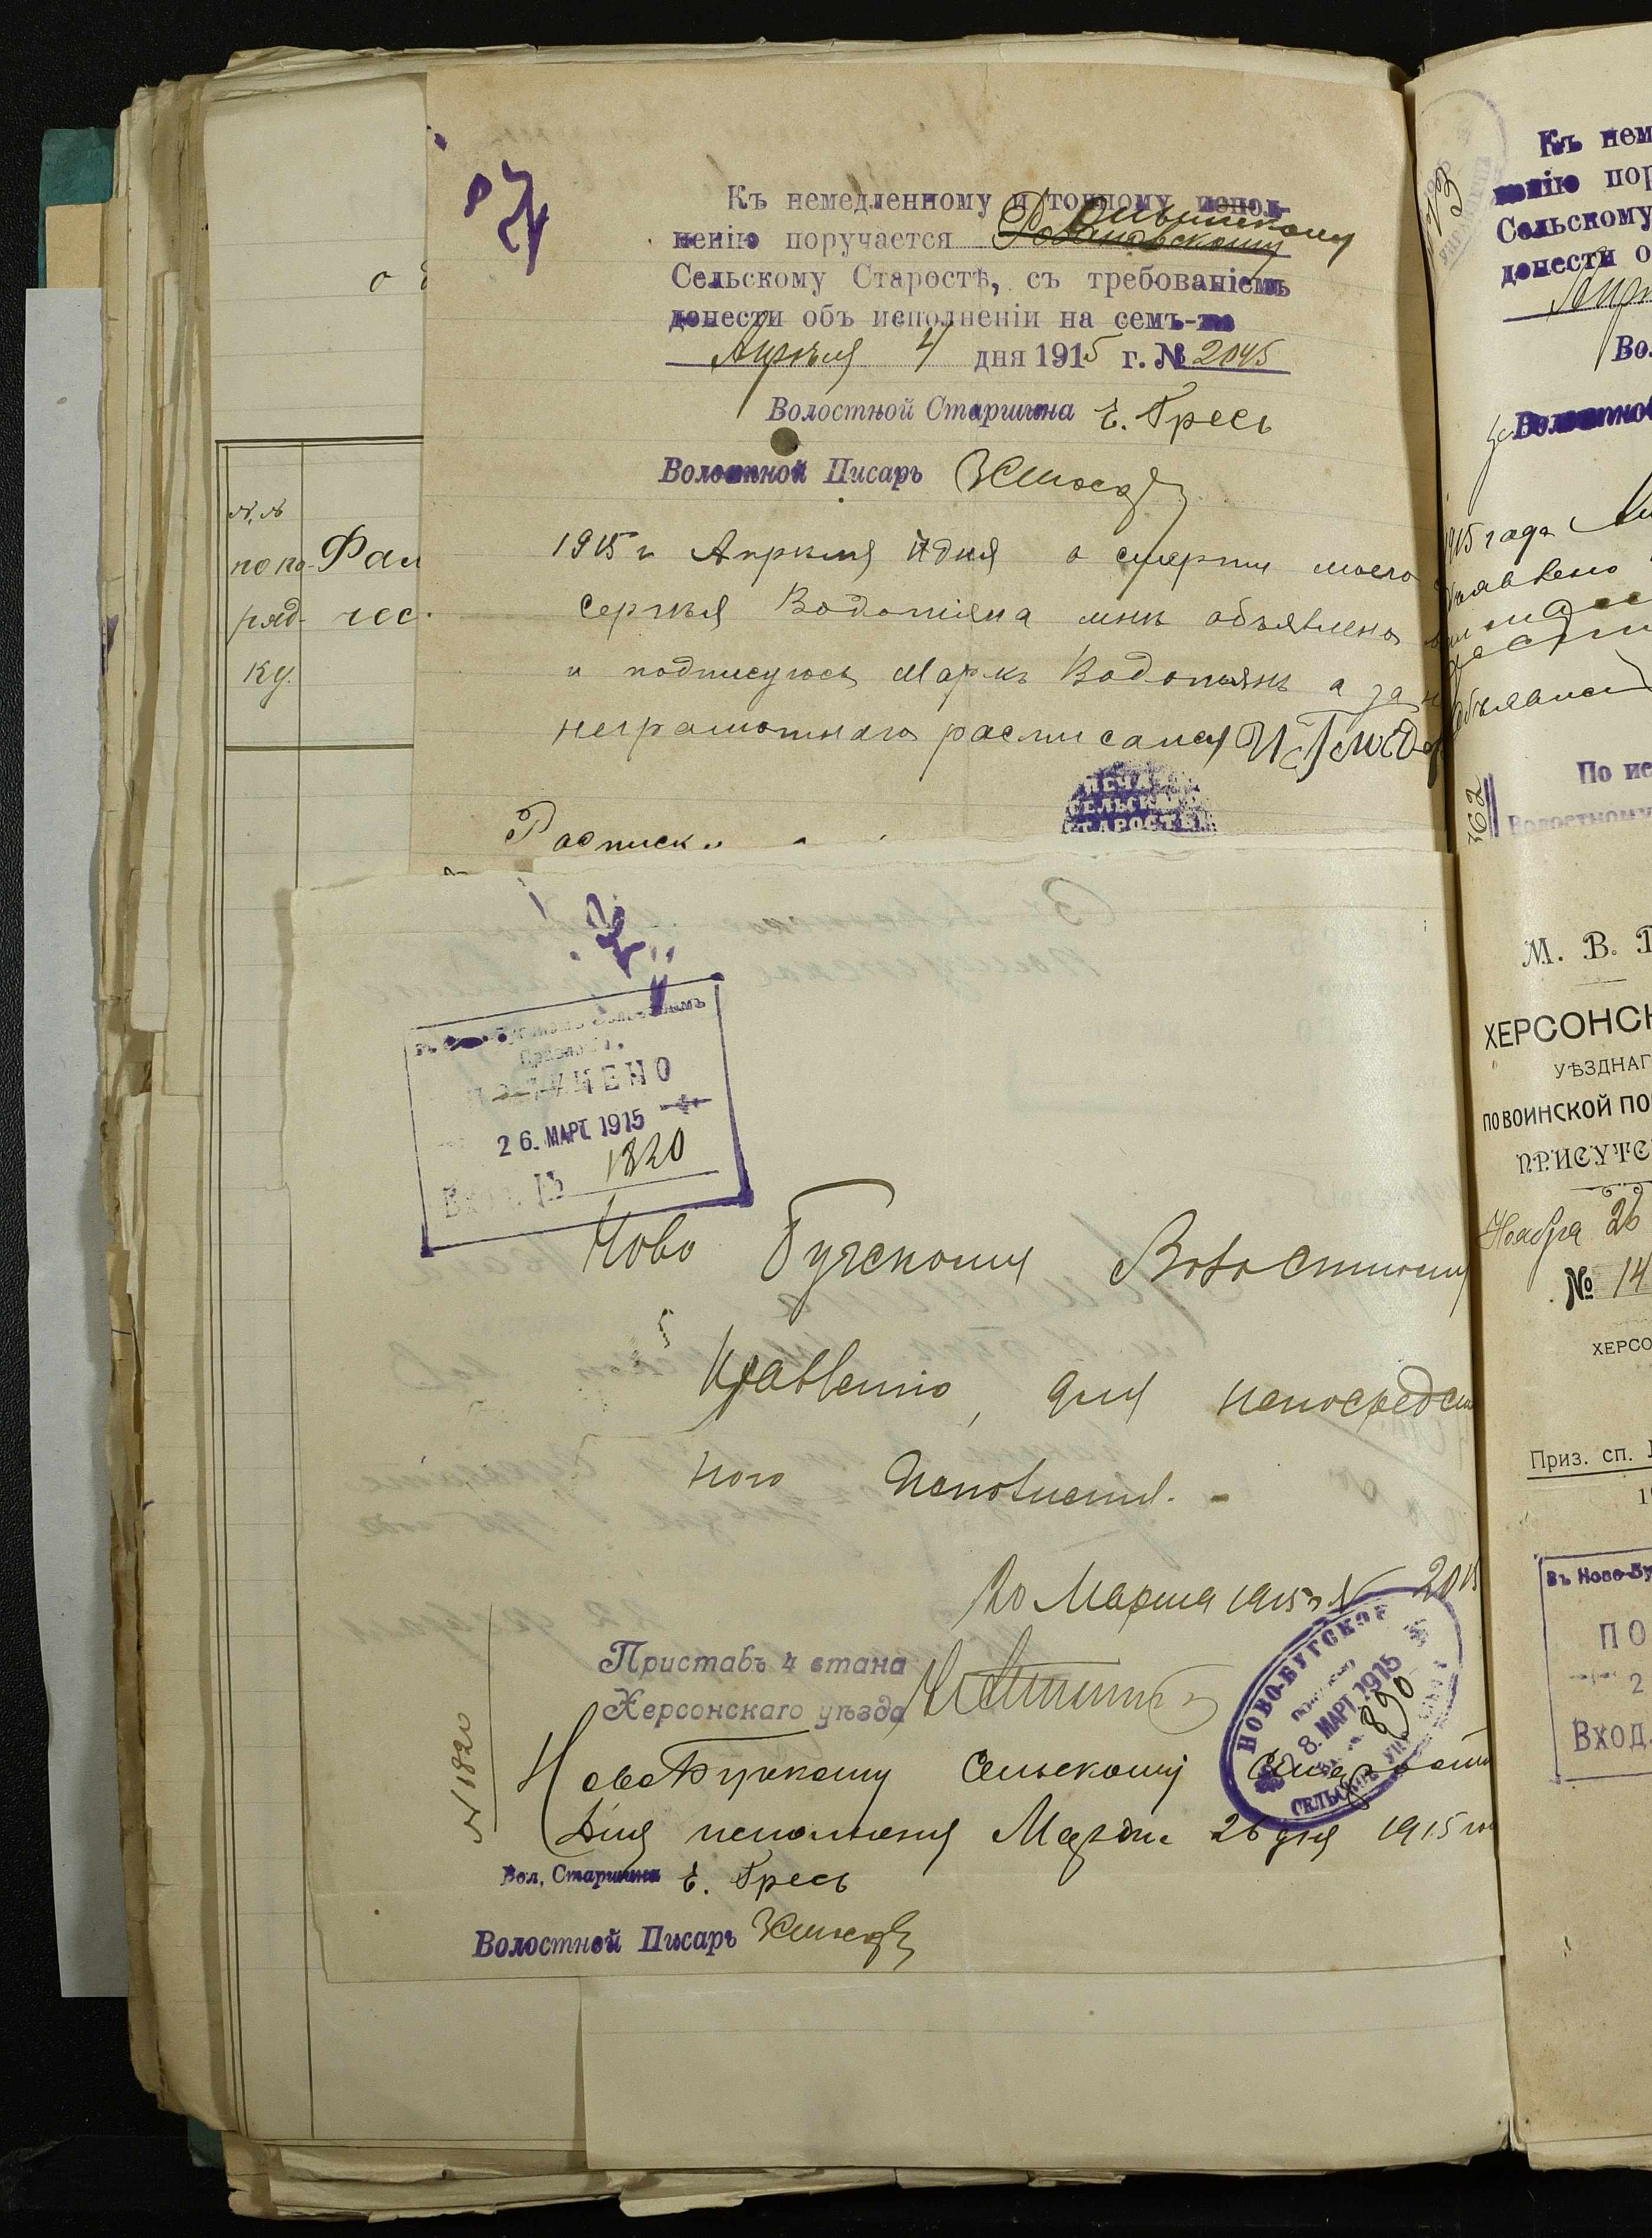 87
Къ немедленному и точному испол-
неніи поручается
Сельскому Старостѣ, съ требованіемъ
донести объ исполненіи на семъ-же
Апрѣля 4 дня 1915 г. № 2045
Волостной Старшина Е. Гресь
Волостной Писарь
1915 г Апрѣля дня о смерти моего
Сергѣя Водопіяна мнѣ объявлено
и подписуюсь Маркъ Водопіянъ а за н
неграмотнаго росписался
ПЕЧАТЬ
СЕЛЬСКАГО
СТАРОСТЫ
Росписк
о
№№
по по-
ряд-
ку.
Фам
чес
ПОЛУЧЕНО
26. МАРТ. 1915
Вход. № 1820
Ново Бугскому Волостному
Правленію, для непосредствен
ного исполненія.
20 Марта 1915 г N 20
Приставъ 4 стана
Херсонскаго уѣзда
НОВО-БУГСКОЕ
28. МАРТ. 1915
890
СЕЛЬСКОЕ
N 1820
НовоБугскому Сельскому Старостѣ
Для исполненія Марта 26 дня 1915 го
Вол. Старшина Е. Гресь
Волостной Писарь
Къ нем
ненію пор
Сельскому
донести о
Апр
Вол
Волостной
1915 года
объявлено
объявлен
362
По ис
Волостному
М. В. 
ХЕРСОНСК
УѢЗДНАГ
ПО ВОИНСКОЙ ПО
ПРИСУТС
Ноября 26
№ 14
ХЕРСО
Приз. сп.
19
Въ Ново-Бу
ПО
2
ВХОД.